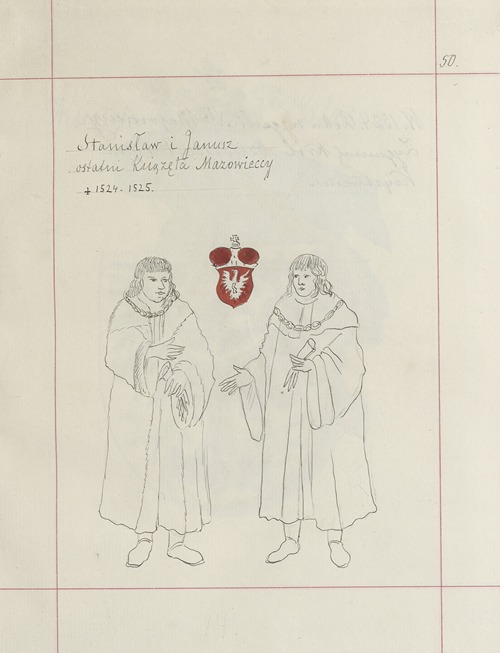 50.
Stanisław i Janusz
ostatni Książęta Mazowieccy
† 1524. 1525.